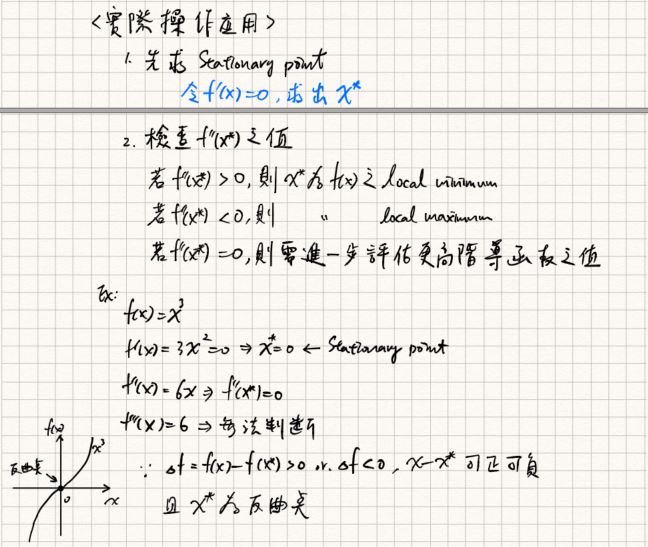 <實際操作应用>
1. 先求 Stationary point
令 f'(x)=0, 求出 x*
2. 檢查 f''(x*) 之值
若 f''(x*) >0, 則 x* 为 f(x) 之 local minimum
若 f''(x*) <0, 則 〃 local maximum
若 f''(x*) =0, 則需進一步評估更高階導函数之值
Ex:
f(x)=x³
f'(x)=3x²=0 ⇒ x*=0 ← Stationary point
f''(x)=6x ⇒ f''(x*)=0
f'''(x)=6 ⇒ 無法判斷
∵ Δf = f(x)-f(x*) >0 or Δf <0, x-x* 可正可負
且 x* 为反曲点
f(x)
x³
反曲点
0
x